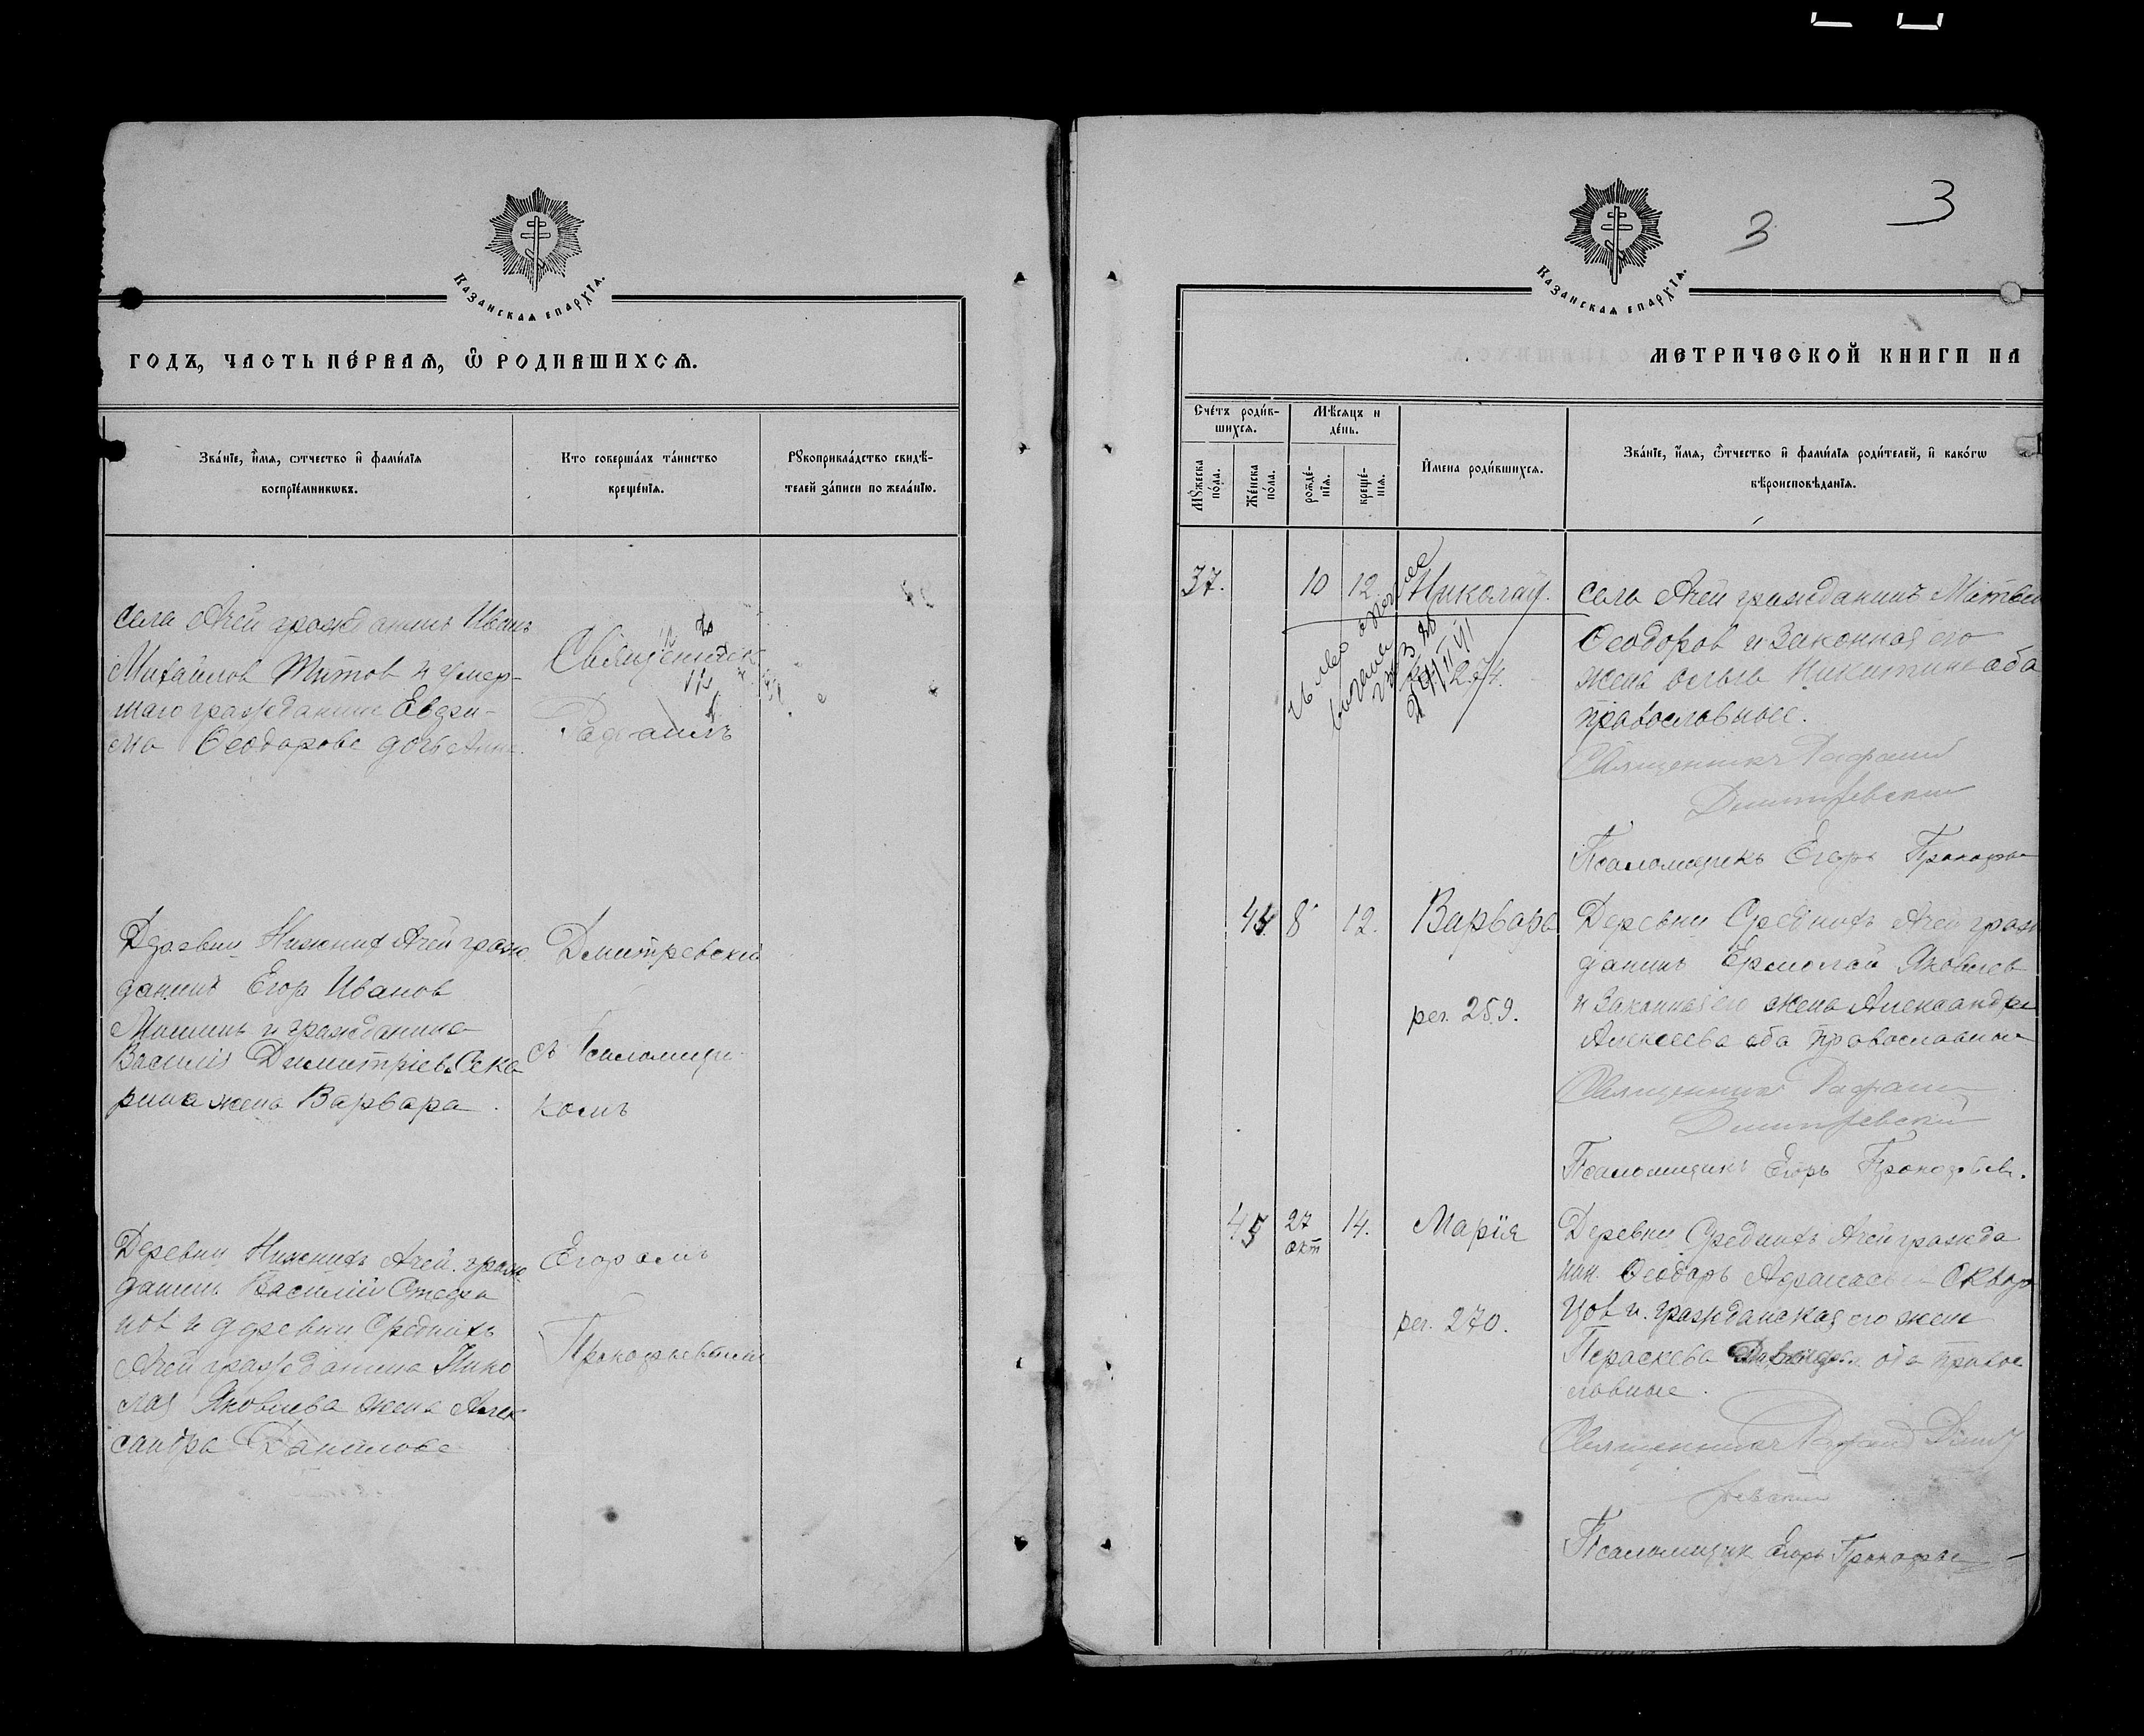 Казанская епархїа.
годъ, часть пе́рвая, ѿ родившихся.
Зва́нїе, и҆́мя, ѻтчество и҆ фами́лїя
воспрїе́мникѡвъ.
Кто соверша́лъ та́инство
креще́нїя.
Рꙋкоприкла́дство свидѣ́-
телей за́писи по жела́нїю.
села Ачей гражданинъ Иванъ
Михайлов Титов и умер-
шаго гражданина Евдки-
ма Ѳеодорова дочь Анна.
Священник
Рафаилъ
Деревни Нижних Ачей граж
данинъ Егор Иванов
и гражданина
Василія Димитріева
рина жена Варвара.
Дмитревский
съ Псаломщи-
комъ
Деревни Нижнихъ Ачей граж
данинъ Василий Степа
нов и деревни Среднихъ
Ачей гражданина Нико
лая Яковлева жена Алек
сандра Данилова
Егоромъ
Прокофьевымъ
3
3
Казанская епархїа.
метрической книги на
Сче́тъ роди́в-
шихся.
Мѣ́сяцъ и
де́нь.
Мꙋ́жеска
по́ла.
Же́нска
по́ла.
рожде́-
нїя.
креще́-
нїя.
И҆мена роди́вшихся.
Зва́нїе, и҆́мя, ѻ҆́тчество и҆ фами́лїя роди́телей, и҆ како́гѡ
вѣроисповѣ́данїя.
37. 10 12 Николай.
274.
села Ачей гражданинъ Матвей
Ѳеодоров и законная его
жена Никитина оба
православные.
Священникъ Рафаил
Дмитревский
Псаломщикъ Егоръ Прокофьев
44 8 12. Варвара
рег. 259.
Деревни Среднихъ Ачей граж
данинъ Ермолай Яковлев
и законная его жена Александра
Алексеева оба православные
Священник Рафаил
Дмитревский
Псаломщикъ Егоръ Прокофьев.
45 27 окт 14. Марія
рег. 270.
Деревни Среднихъ Ачей гражда
нин. Ѳеодоръ Афанасьев Сквор
цов и гражданская его жена
Параскева оба право
славные.
Священникъ Рафаил Дмит
ревский
Псаломщик Егоръ Прокофьев